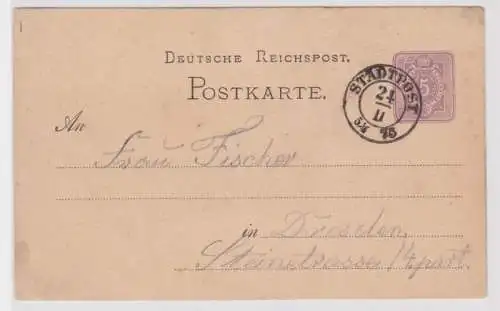 DEUTSCHE REICHSPOST.
POSTKARTE.
STADTPOST
24
II
75
5
An
Frau Fischer
in Dresden,
Steinstrasse 14 part.